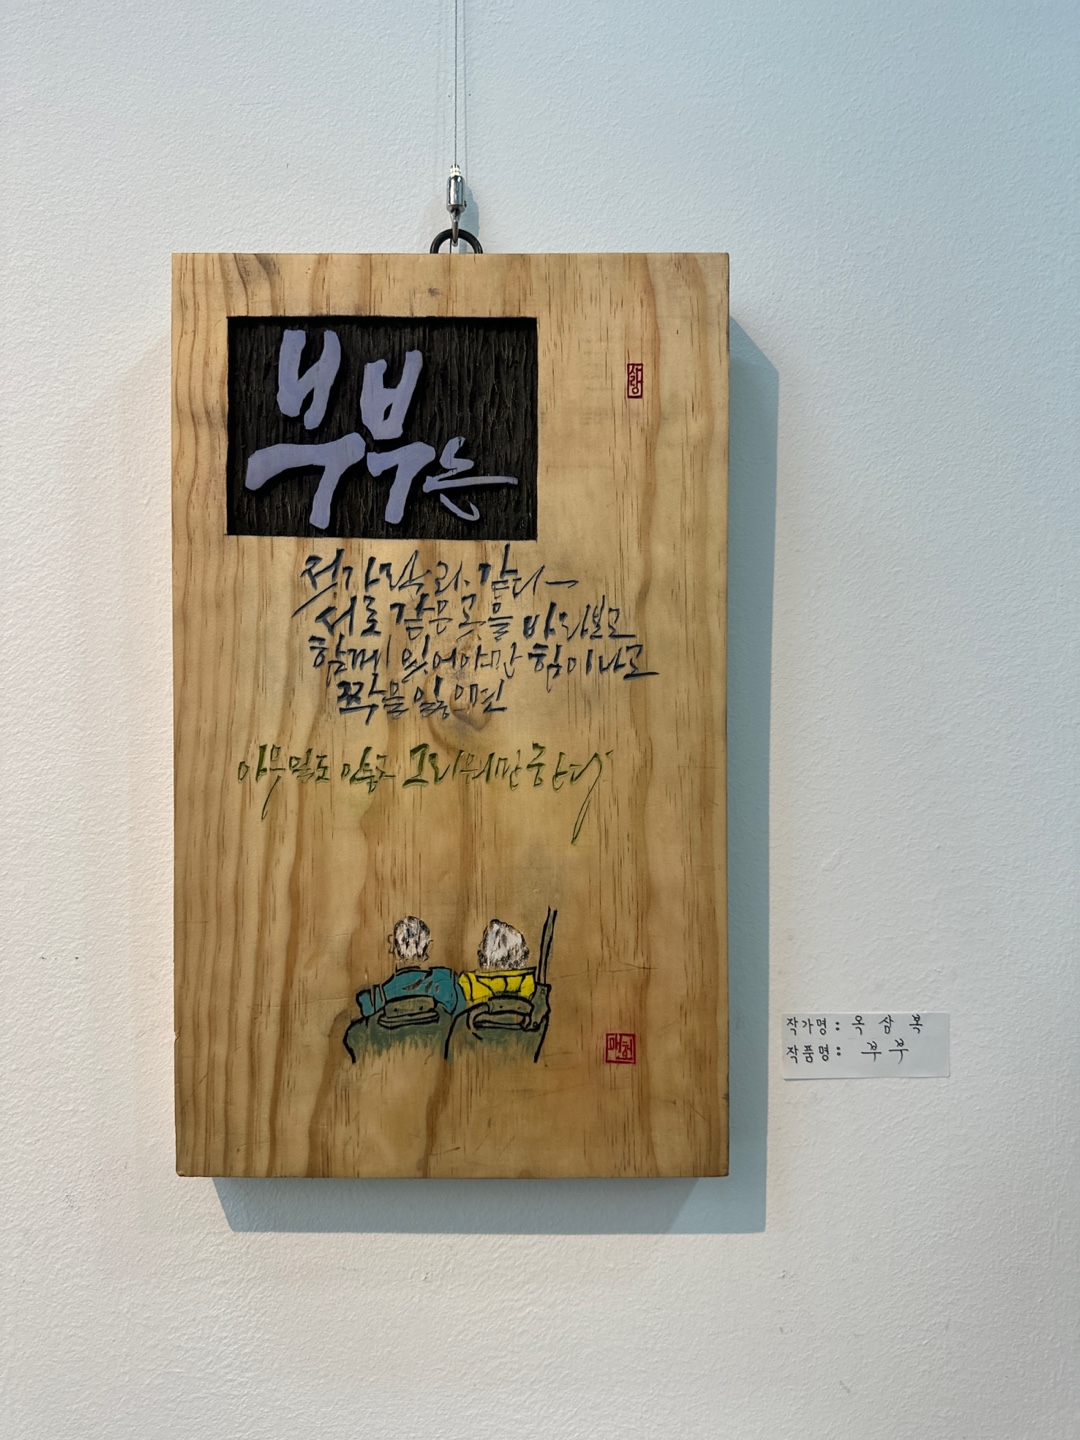 부부는
사랑
젓가락과 같다
서로 같은 곳을 바라보고
함께 있어야만 힘이나고
짝을 잃으면
아무일도 그리워만 한다
작가명: 옥삼복
작품명: 부부